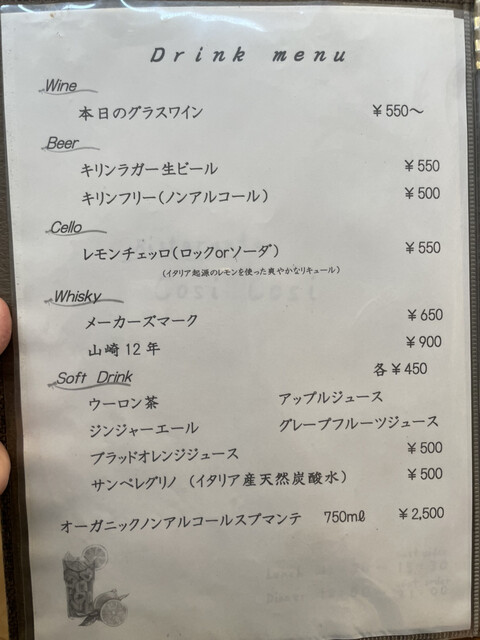 Drink menu
Wine
本日のグラスワイン ￥550～
Beer
キリンラガー生ビール ￥550
キリンフリー（ノンアルコール） ￥500
Cello
レモンチェッロ（ロックorソーダ） ￥550
（イタリア起源のレモンを使った爽やかなリキュール）
Whisky
メーカーズマーク ￥650
山崎12年 ￥900
Soft Drink 各￥450
ウーロン茶 アップルジュース
ジンジャーエール グレープフルーツジュース
ブラッドオレンジジュース ￥500
サンペレグリノ（イタリア産天然炭酸水） ￥500
オーガニックノンアルコールスプマンテ 750㎖ ￥2,500